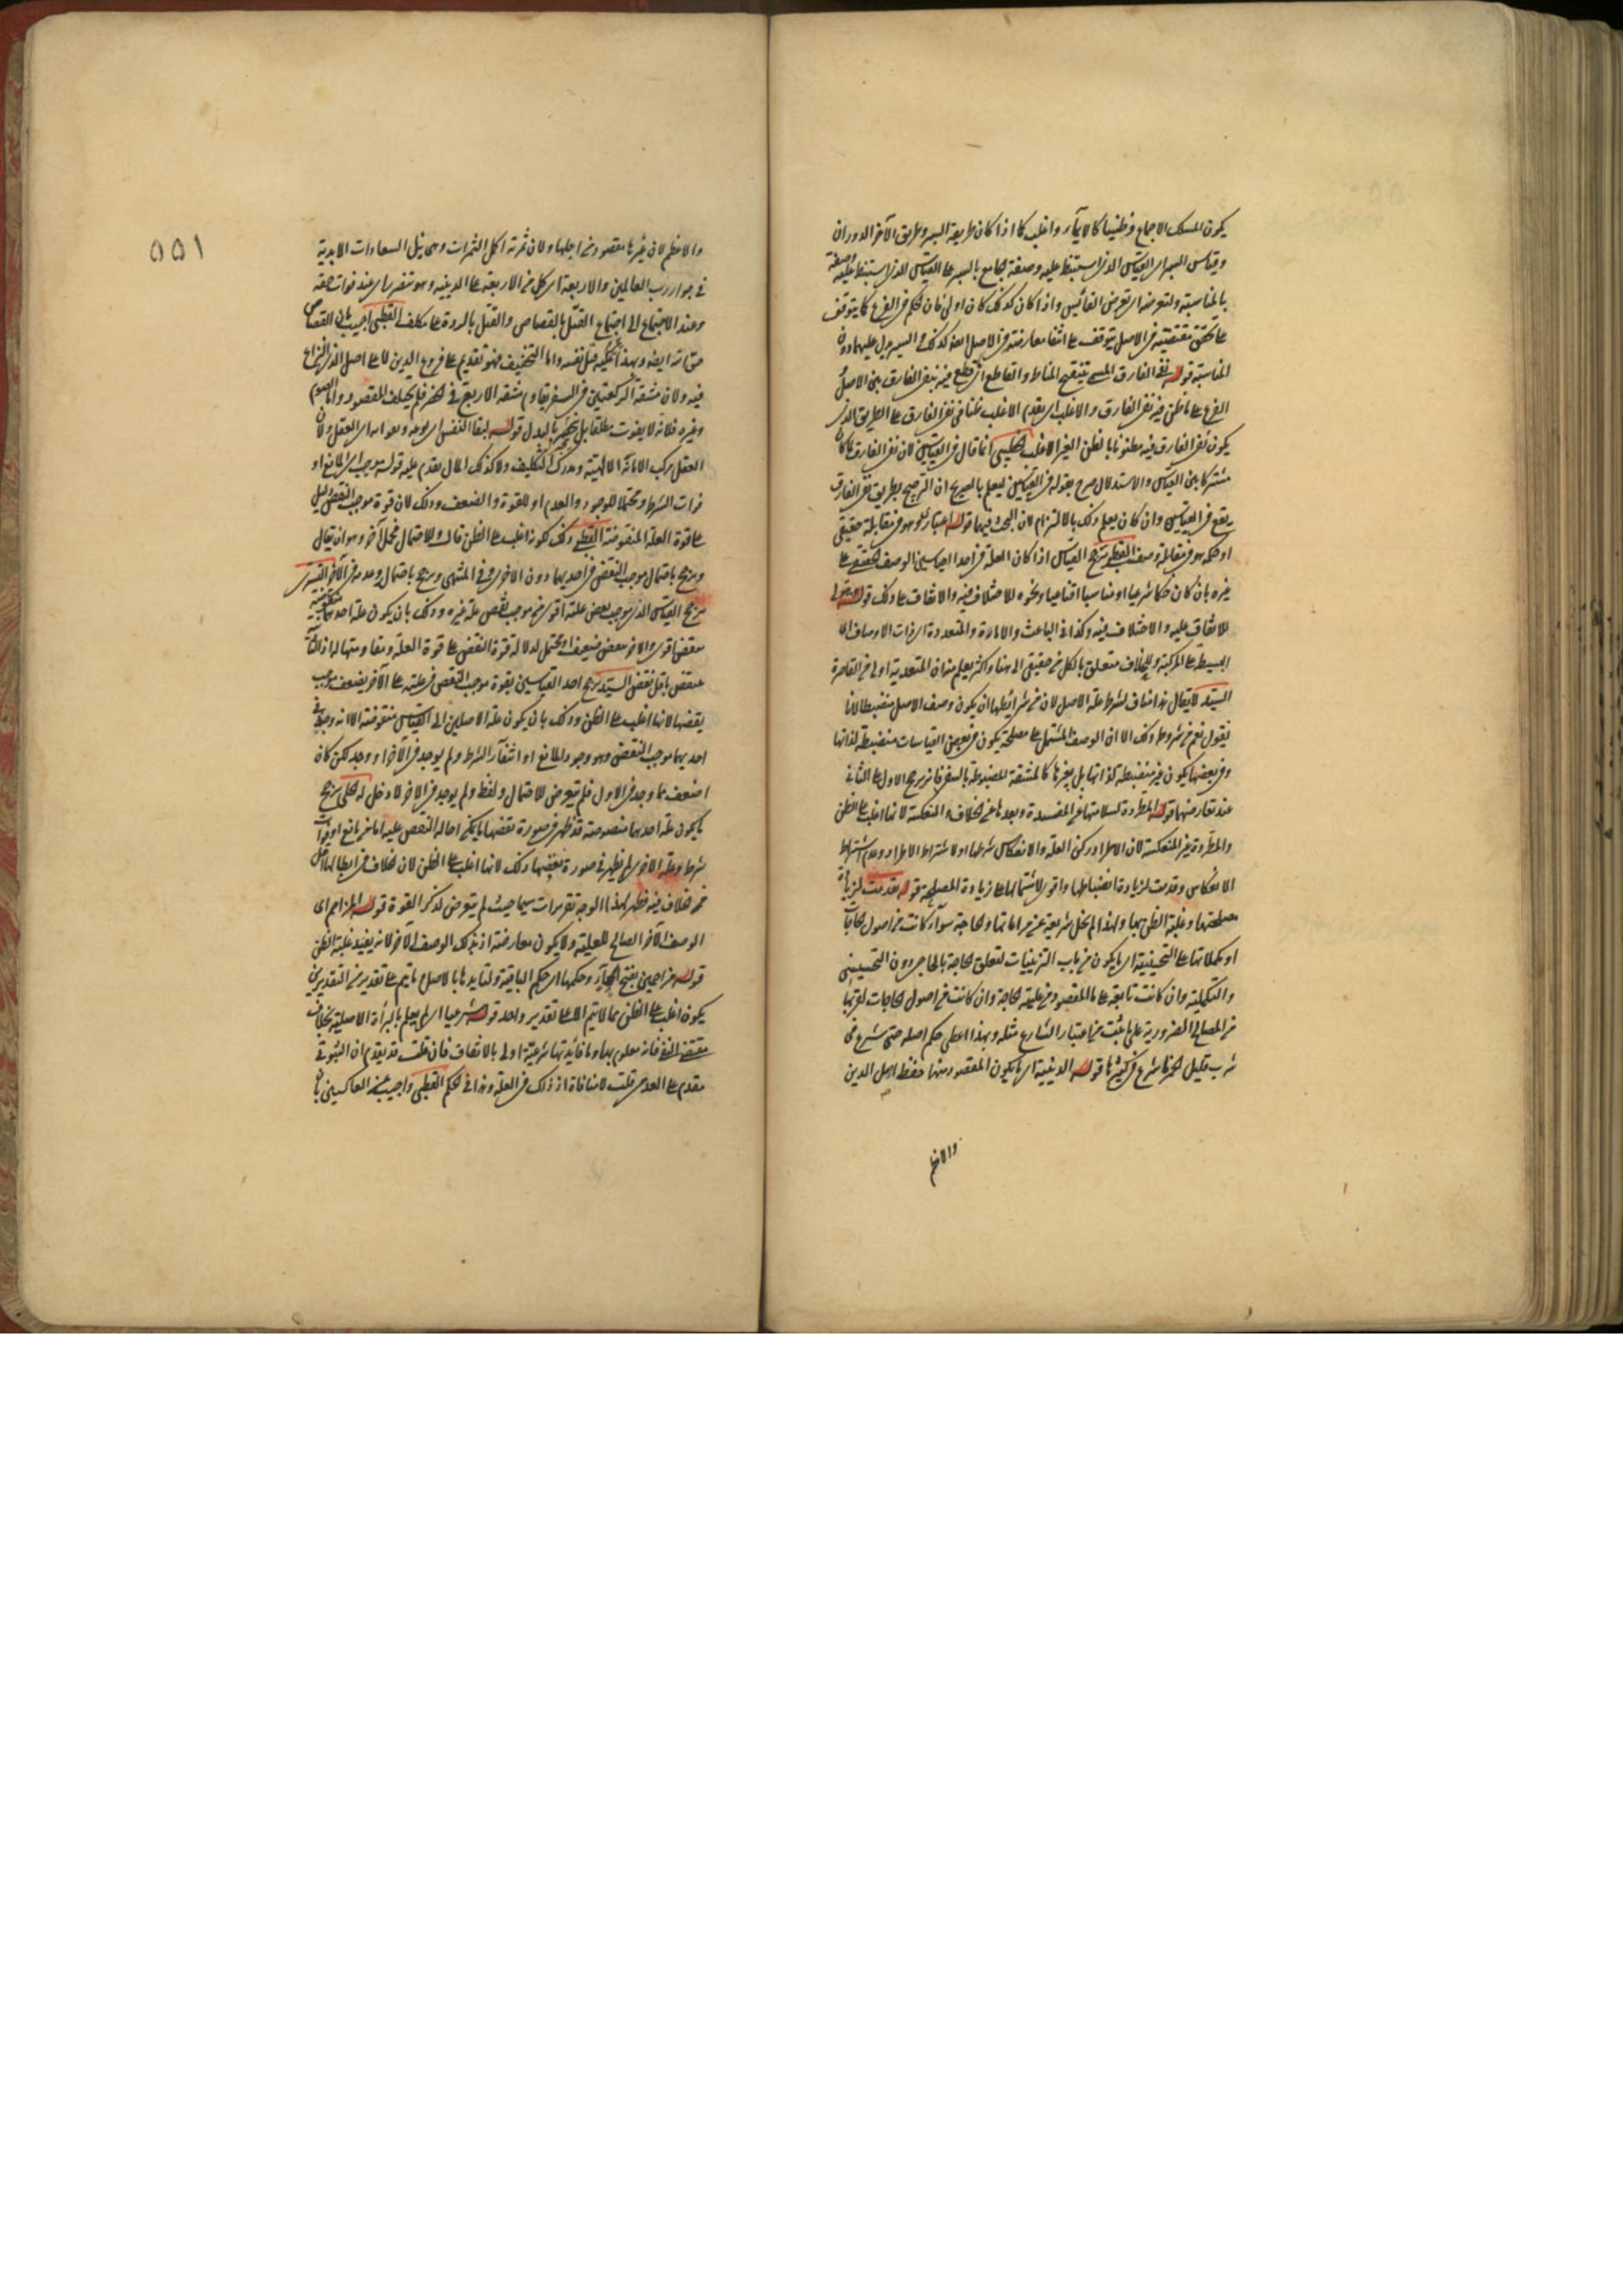 يكون المسلك الاجماع وظنيا كالايماء واغلب كما اذا كان طريقة السبر وطريق الآخر الدوران
وقياس السبر اى القياس الذى استنبط عليه وصفة الجامع بالسبر على القياس الذى استنبط عليه وصفه
بالمناسبة ولتعرضه اى تعرض القائس واذا كان كذلك كان اولى فان الحكم فى الفرع كما يتوقف
على تحقق مقتضيه فى الاصل يتوقف على انتفاء معارضته فى الاصل ايضا كذلك فى السبر يدل عليهما دون
المناسبة قوله نفى الفارق المسمى بتنقيح المناط والقاطع اى قطع فيه بنفى الفارق بين الاصل و
الفرع على ما ظن فيه نفى الفارق والاغلب اى يقدم الاغلب ظنا فى نفى الفارق على الطريق الذى
يكون نفى الفارق فيه مظنونا بالظن الغير الاغلب الخطيبى انما قال فى القياسين لان نفى الفارق لما كان
مشتركا بين القياس والاستدلال صرح بقوله فى القياسين ليعلم بالصريح ان الترجيح بطريق نفى الفارق
يقع فى القياسين وان كان يعلم ذلك بالالتزام لان البحث فيهما قوله اعتبارى هو فى مقابلة حقيقى
او حكمه هو فى مقابلة وصف القطبى يرجح القياس اذا كان العلة فى احد القياسين الوصف الحقيقى على
غيره بان كان حكما شرعيا او مناسبا اقناعيا ونحوه للاختلاف فيه والاتفاق على ذلك قوله وثبوتى
للاتفاق عليه والاختلاف فيه وكذا فى الباعث والامارة والمتعددة اى ذات الاوصاف اى
البسيطة على المركبة وللخلاف متعلق بالكل من حقيقى الى هنا واكثر يعلم منه ان المتعدية اولى من القاصرة
السيد لا يقال هذا مناف لشروط علة الاصل لان من شرائطها ان يكون وصف الاصل منضبطا لانا
نقول نعم من شروط ذلك الا ان الوصف المشتمل على مصلحة يكون فى بعض القياسات منضبطة لذاتها
وفى بعضها يكون غير منضبطة لذاتها بل بغيرها كالمشقة المضبوطة بالسفر فانه يرجح الاول على الثانى
عند تعارضهما قوله المطردة لسلامتها عن المفسدة وبعدها عن الخلاف والمنعكسة لانها اغلب على الظن
والمطردة غير المنعكسة لان الاطراد ركن العلة والانعكاس شرطها او لاشتراط الاطراد وعدم اشتراط
الانعكاس وقدمت لزيادة انضباطها واقوى لاشتمالها على زيادة المصلحة قوله قدمت لزيادة
مصلحتها وغلبة الظن بها ولهذا لم يخل شريعة عن مراعاتها والحاجية سواء كانت من اصول الحاجات
او مكملاتها على التحسينية اى ما يكون من باب التزيينات لتعلق الحاجة بالحاجى دون التحسينى
والتكميلية وان كانت تابعة على ما المقصود من عليته الحاجة وان كانت من اصول الحاجات لقربها
من المصالح الضرورية على ما ثبت من اعتبار الشارع مثله وبهذا اعطى حكم اصله حتى شرع فى
شرب قليل الخمر ما شرع فى كثيرها قوله الدينية اى ما يكون المقصود منها حفظ اصل الدين
والاعظم
٥٥١
والاعظم لان غيرها مقصود من اجلها ولان ثمرته اكمل الثمرات وهى نيل السعادات الابدية
فى جوار رب العالمين والاربعة اى كل من الاربعة على الدينية وهو متضرر اى عند فوات حقه
وعند الاجتماع اى اجتماع القتل بالقصاص والقتل بالردة على مكلف القطبى اجيب بان القصاص
حق الله ايضا ولهذا يحرم عليه قتل نفسه واما التخفيف فهو تقديم على فروع الدين لا على اصل الذى النزاع
فيه ولان مشقة الركعتين فى السفر يقاوم مشقة الاربع فى الحضر فلم يختلف المقصود واما الصوم
وغيره فلانه لا يفوت مطلقا بل ينجبر بالبدل قوله لبقاء النفس اى لوجوده وبعدها اى العقل ولان
العقل مركب الامانة الالهية ومدرك التكليف ولا كذلك المال تقدم عليه قوله موجب اى المانع او
فوات الشرط ومحتملا للوجود والعدم او للقوة والضعف وذلك لان قوة موجب النقض دليل
على قوة العلة المنقوضة القطبى وذلك لكونه اغلب على الظن قال وللاحتمال محمل آخر وهو ان يقال
ويرجح باحتمال موجب النقض فى احديهما دون الاخرى وفى المنتهى ويرجح باحتمال وعدمه فى الآخر التسترى
يرجح القياس الذى موجب نقض علته اقوى من موجب نقض علة غيره وذلك بان يكون علة احدهما منقوضة
بنقض اقوى والاخر بنقض ضعيف او محتمل لدلالة قوة النقض على قوة العلة ومقاومتها له اذ الشئ
لا ينتقض باقل نقض السيد يرجح احد القياسين بقوة موجب النقض فى علته على الآخر بضعف موجب
نقضها لانها اغلب على الظن وذلك بان يكون علة الاصلين اى القياس منقوضة الا انه وجد فى
احديهما موجب النقض وهو وجود المانع او انتفاء الشرط ولم يوجد فى الآخر او وجد لكن كان
اضعف مما وجد فى الاول فلم يتعرض للاحتمال ولفظ ولم يوجد فى الآخر لا دخل له الحلى يرجح
ما يكون علة احدهما منصوصة قد ظهر فى صورة نقضها ما يمكن احالة النقض عليه اما من مانع او فوات
شرط وعلة الاخرى لم يظهر فى صورة نقضها ذلك لانها اغلب على الظن لان الخلاف فى ابطالها اقل
من خلاف فيه فظهر بهذا الوجه تقريرات سيما حيث لم يتعرض لذكر القوة قوله المزاحم اى
الوصف الآخر الصالح للعلية ولا يكون معارضة اذ بذلك الوصف الآخر لانه يفيد غلبة الظن
قوله مزاحمين بفتح الحاء وحكمها اى حكم الباقية ولتأييدها بالاصل ما يتم على تقدير من التقديرين
يكون اغلب على الظن مما لا يتم الا على تقدير واحد قوله شرعيا اى لم يعلم بالبراءة الاصلية بخلاف
مقتضى النفى فانه معلوم بها وما فايدتها شرعية اولى بالاتفاق فان قلت قد تقدم ان الثبوتى
مقدم على العدمى قلت لا منافاة اذ ذلك فى العلة وهذا فى الحكم القطبى واجيب عنه العاكسين بان